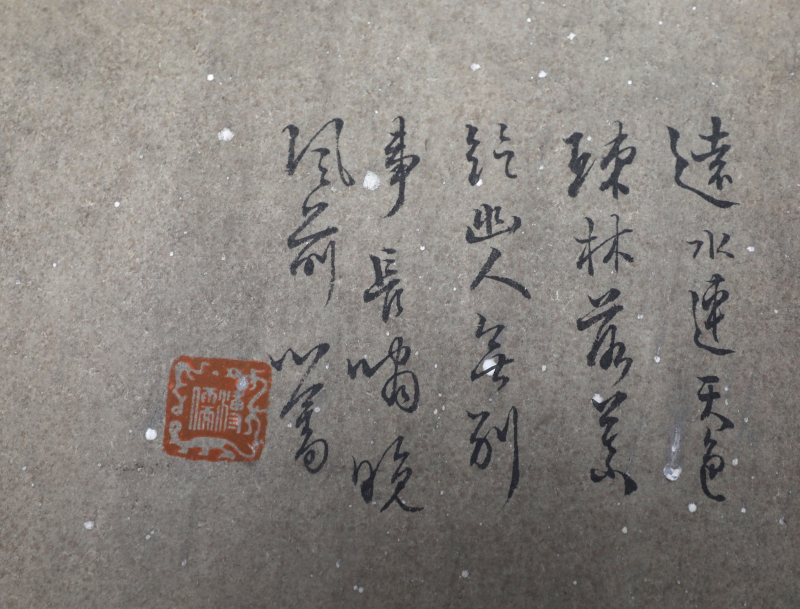 遠水連天色
疎林落葉
鈴幽人無別
事長嘯晚
風前 心畬
溥儒